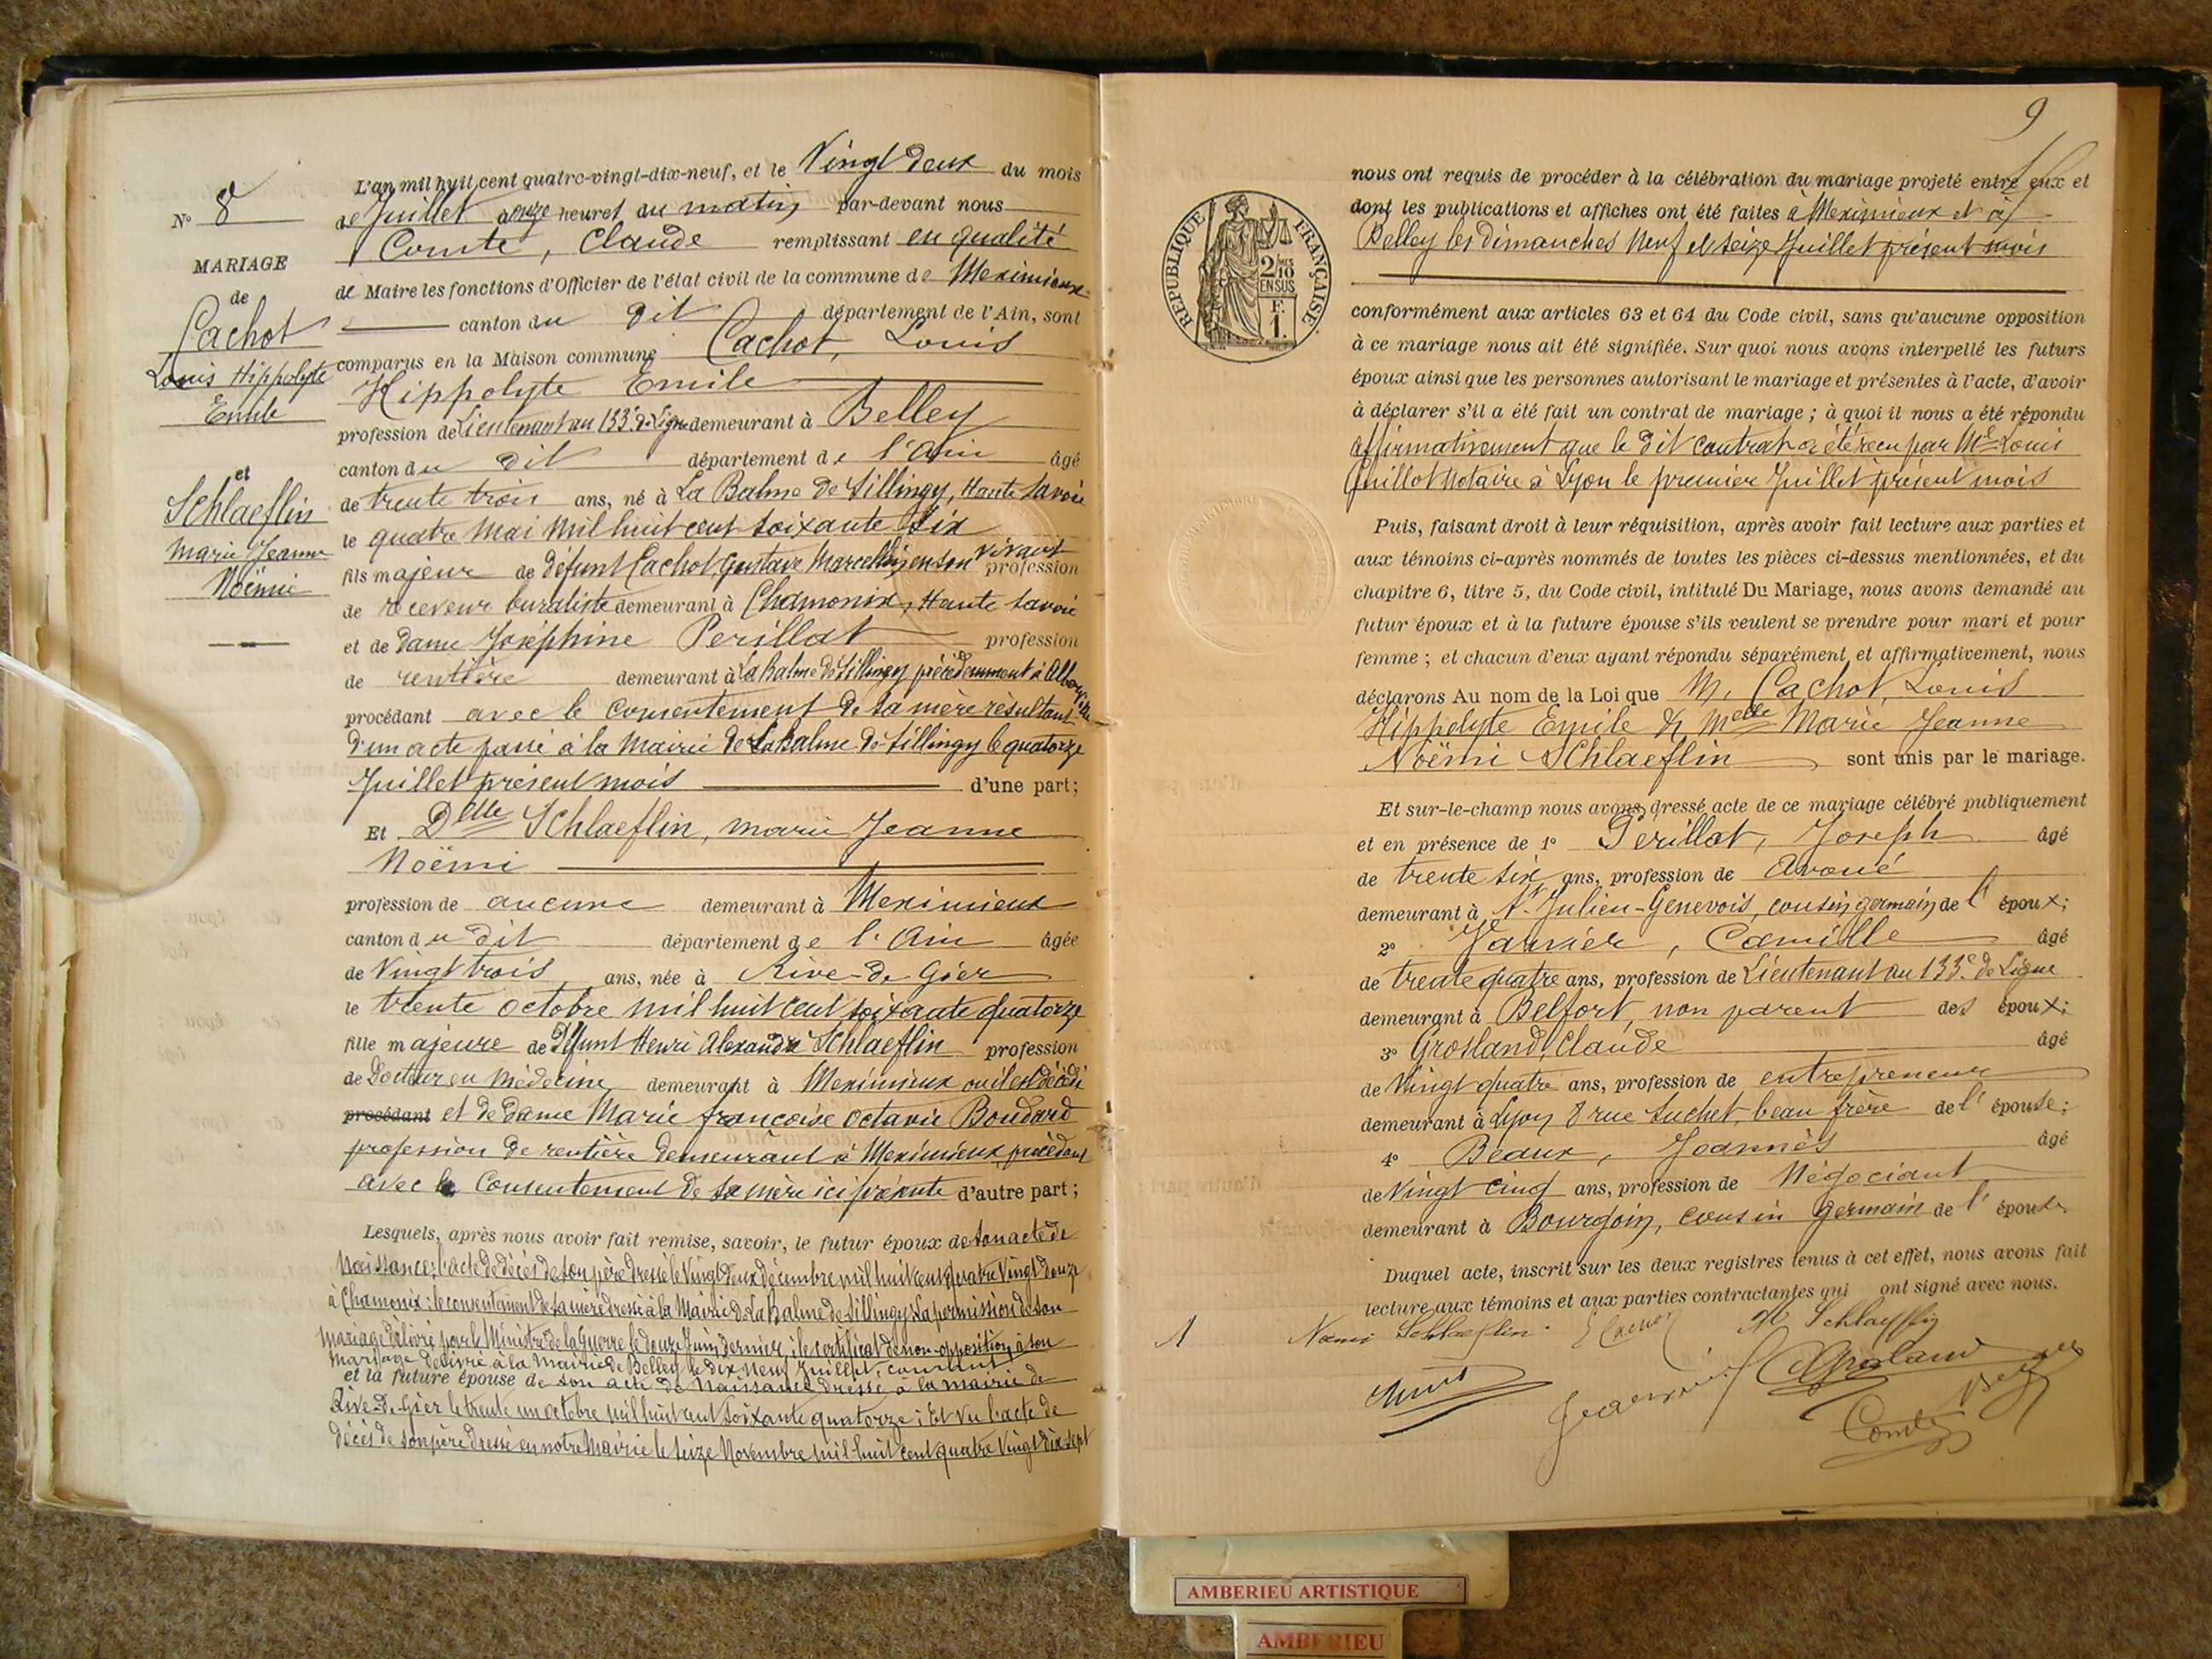 L'an mil huit cent quatre-vingt-dix-neuf, et le Vingt deux du mois
de Juillet à onze heures du matin par-devant nous
Comte, Claude remplissant en qualité
de Maire les fonctions d'Officier de l'état civil de la commune de Meximieux
canton du dit département de l'Ain, sont
comparus en la Maison commune Cachot, Louis
Hippolyte Emile
profession de Lieutenant au 133e de Ligne demeurant à Belley
canton du dit département de l'Ain âgé
de trente trois ans, né à La Balme de Sillingy, Haute Savoie
le quatre Mai mil huit cent soixante six
fils majeur de défunt Cachot Gustave Marcellin, en son vivant profession
de receveur buraliste demeurant à Chamonix, Haute Savoie
et de dame Joséphine Perillat profession
de rentière demeurant à La Balme de Sillingy précédemment à
procédant avec le consentement de sa mère résultant
d'un acte passé à la Mairie de La Balme de Sillingy le quatorze
Juillet présent mois d'une part;
Et Delle Schlaeflin, marie Jeanne
Noëmi
profession de aucune demeurant à Meximieux
canton du dit département de l'Ain âgée
de Vingt trois ans, née à Rive-de-Gier
le trente octobre mil huit cent soixante quatorze
fille majeure de Défunt Henri Alexandre Schlaeflin profession
de Docteur en Médecine demeurant à Meximieux où il est décédé
procédant et de dame Marie françoise octavie Boudard
profession de rentière demeurant à Meximieux procédant
avec le Consentement de sa mère ici présente d'autre part;
Lesquels, après nous avoir fait remise, savoir, le futur époux de son acte de
Naissance; l'acte de décès de son père dressé le Vingt deux décembre mil huit cent quatre Vingt douze
à Chamonix: le consentement de sa mère dressé à la Mairie de La Balme de Sillingy; La permission de son
mariage délivré par le Ministre de la Guerre le douze Juin dernier; le certificat de non-opposition à son
mariage délivré à la Mairie de Belley le dix neuf Juillet, courant
et la future épouse de son acte de Naissance dressé à la mairie de
Rive-de-Gier le trente un octobre mil huit cent soixante quatorze; Et Vu l'acte de
décès de son père dressé en notre Mairie le seize Novembre mil huit cent quatre Vingt dix sept
N° 8
MARIAGE
de
Cachot
Louis Hippolyte
Emile
et
Schlaeflin
Marie Jeanne
Noëmie
9
nous ont requis de procéder à la célébration du mariage projeté entre eux et
dont les publications et affiches ont été faites à Meximieux et à
Belley les dimanches Neuf et seize Juillet présent mois
RÉPUBLIQUE FRANÇAISE
2/10mes
EN SUS
F.
1.
conformément aux articles 63 et 64 du Code civil, sans qu'aucune opposition
à ce mariage nous ait été signifiée. Sur quoi nous avons interpellé les futurs
époux ainsi que les personnes autorisant le mariage et présentes à l'acte, d'avoir
à déclarer s'il a été fait un contrat de mariage; à quoi il nous a été répondu
affirmativement que le dit contrat a été reçu par Me Louis
Guillot Notaire à Lyon le premier Juillet présent mois
Puis, faisant droit à leur réquisition, après avoir fait lecture aux parties et
aux témoins ci-après nommés de toutes les pièces ci-dessus mentionnées, et du
chapitre 6, titre 5, du Code civil, intitulé Du Mariage, nous avons demandé au
futur époux et à la future épouse s'ils veulent se prendre pour mari et pour
femme; et chacun d'eux ayant répondu séparément et affirmativement, nous
déclarons Au nom de la Loi que M. Cachot, Louis
Hippolyte Emile & Melle Marie Jeanne
Noëmi Schlaeflin sont unis par le mariage.
Et sur-le-champ nous avons dressé acte de ce mariage célébré publiquement
et en présence de 1° Perillat, Joseph âgé
de trente six ans, profession de Avoué
demeurant à St-Julien-Genevois, cousin germain de l'époux;
2° Janvier, Camille âgé
de trente quatre ans, profession de Lieutenant au 133e de Ligne
demeurant à Belfort, non parent des époux;
3° Grosland, Claude âgé
de Vingt quatre ans, profession de entrepreneur
demeurant à Lyon 8 rue Suchet, beau frère de l'épouse;
4° Beaux, Joannès âgé
de Vingt cinq ans, profession de Négociant
demeurant à Bourgoin, cousin germain de l'épouse
Duquel acte, inscrit sur les deux registres tenus à cet effet, nous avons fait
lecture aux témoins et aux parties contractantes qui ont signé avec nous.
Noemi Schlaeflin E Cachot M Schlaefflin
Grosland
Comte
AMBERIEU ARTISTIQUE
AMBERIEU